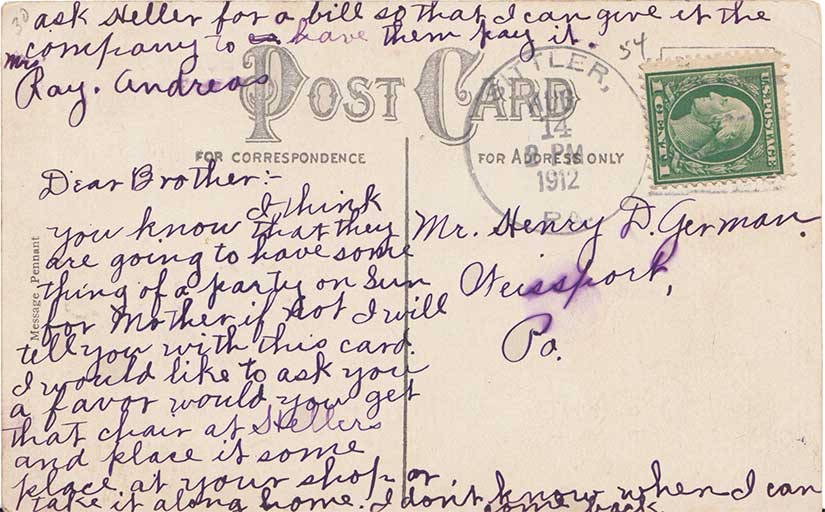 30
ask Heller for a bill so that I can give it the
company to have them pay it.
54
Mrs
Ray. Andreas
POST CARD
FOR CORRESPONDENCE
FOR ADDRESS ONLY
BUTLER,
AUG
14
PM
1912
PA.
U.S. POSTAGE
1 CENT 1
Message Pennant
Dear Brother:-
I think
you know that they
are going to have some
thing of a party on Sun
for Mother if not I will
tell you with this card.
I would like to ask you
a favor would you get
that chair at Hellers
and place it some
place at your shop or
take it along home. I don't know when I can
come back
Mr. Henry D. German.
Weissport,
Pa.